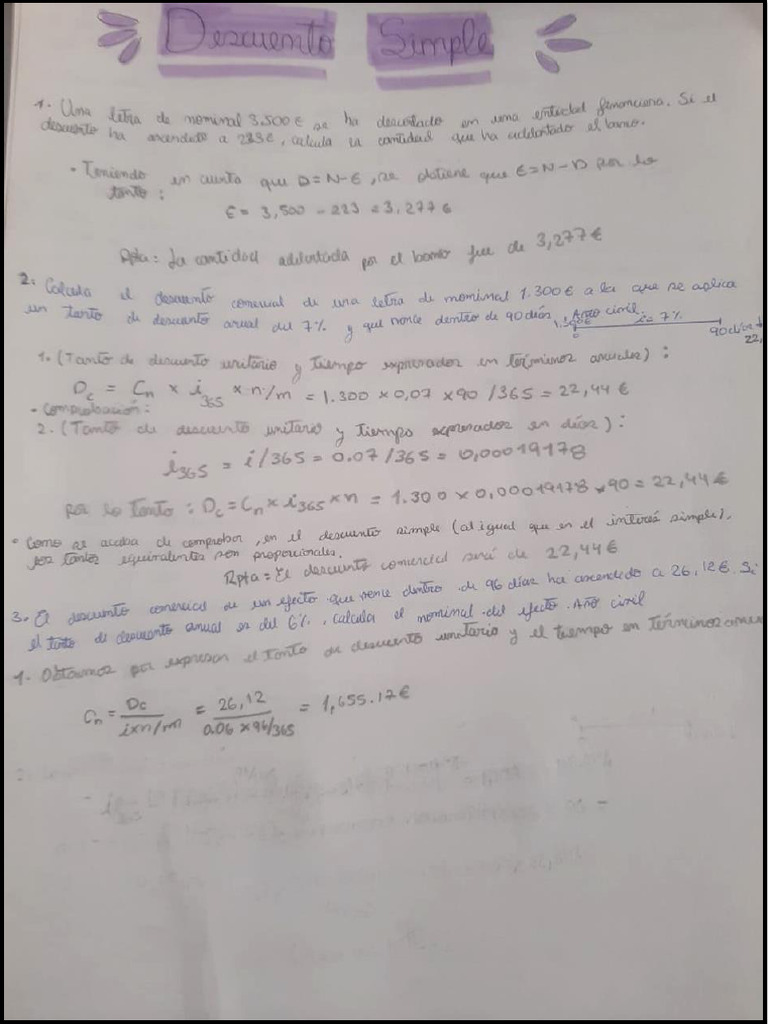 Descuento Simple
1. Una letra de nominal 3.500€ se ha descontado en una entidad financiera. Si el
descuento ha ascendido a 223€, calcula la cantidad que ha adelantado el banco.
• Teniendo en cuenta que D=N-E, se obtiene que E=N-D por lo
tanto:
E= 3,500 - 223 = 3,277€
Rpta: La cantidad adelantada por el banco fue de 3,277€
2. Calcula el descuento comercial de una letra de nominal 1.300€ a la que se aplica
un tanto de descuento anual del 7% y que vence dentro de 90 días. Año civil.
1.300€ i= 7%
0 90 días
22,
1. (Tanto de descuento unitario y tiempo expresados en términos anuales):
Dc = Cn × i365 × n/m = 1.300 × 0,07 × 90 /365 = 22,44€
- Comprobación:
2. (Tanto de descuento unitario y tiempo expresados en días):
i365 = i/365 = 0.07/365 = 0,00019178
Por lo tanto: Dc = Cn × i365 × n = 1.300 × 0,00019178 × 90 = 22,44€
• Como se acaba de comprobar, en el descuento simple (al igual que en el interés simple),
los tantos equivalentes son proporcionales.
Rpta = El descuento comercial será de 22,44€
3. El descuento comercial de un efecto que vence dentro de 96 días ha ascendido a 26,12€. Si
el tanto de descuento anual es del 6%, calcula el nominal del efecto. Año civil
1. Obtamos por expresar el tanto de descuento unitario y el tiempo en términos
Cn = Dc / i×n/m = 26,12 / 0.06 × 96/365 = 1,655.17€